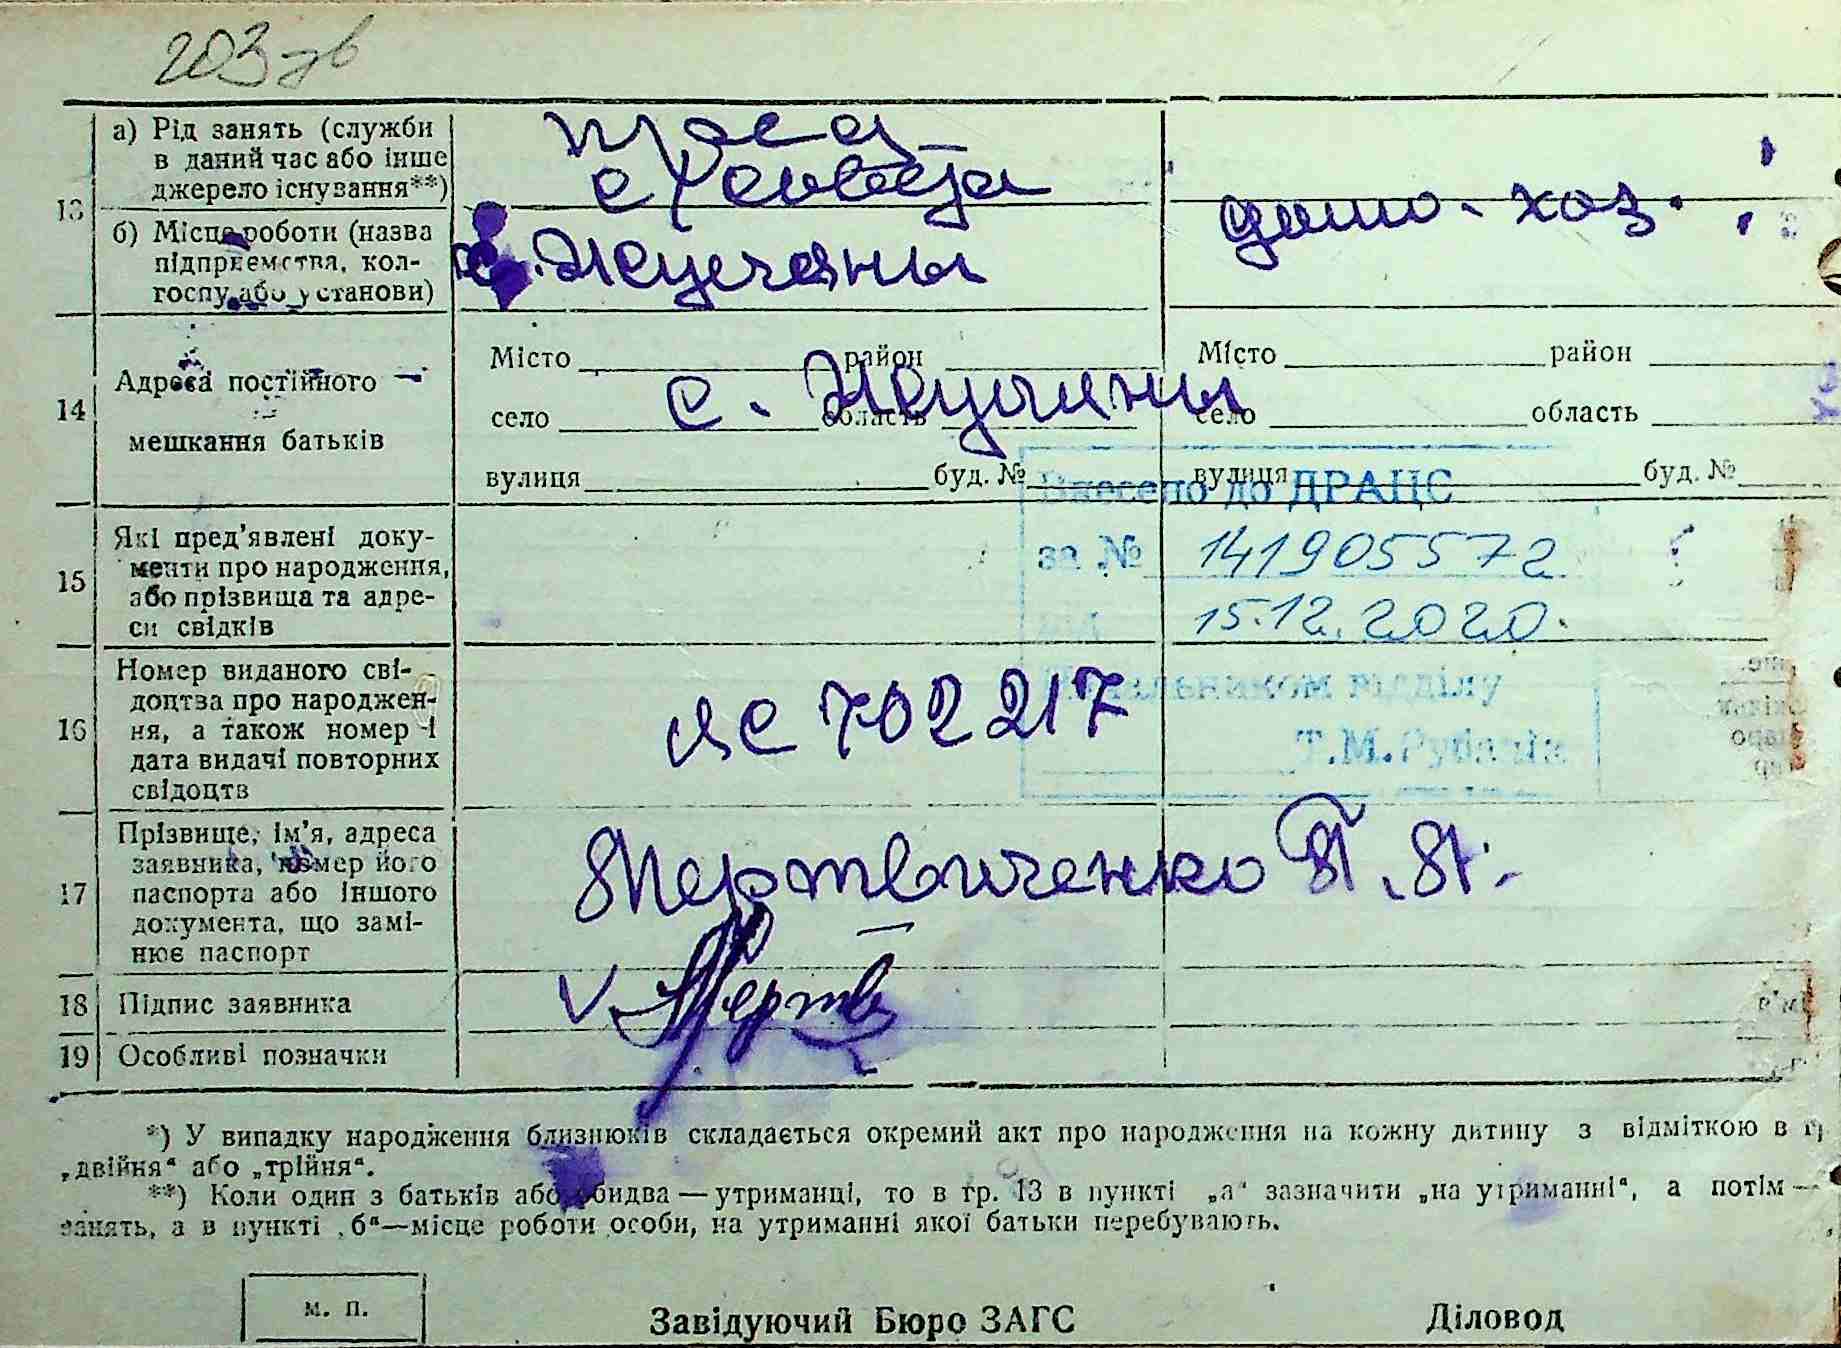 203
13
а) Рід занять (служби
в даний час або інше
джерело існування**)
б) Місце роботи (назва
підприємства, кол-
госпу або установи)
домо-хоз.
14
Адреса постійного
мешкання батьків
Місто район
с.
село область
вулиця буд. №
Місто район
село область
вулиця буд. №
15
Які пред'явлені доку-
менти про народження,
або прізвища та адре-
си свідків
Внесено до ДРАЦС
за № 141905572
від 15.12.2020.
Начальником відділу
Т.М.
16
Номер виданого сві-
доцтва про народжен-
ня, а також номер і
дата видачі повторних
свідоцтв
ЯС 702217
17
Прізвище, ім'я, адреса
заявника, номер його
паспорта або іншого
документа, що замі-
нює паспорт
Мертвиченко П. П.
18
Підпис заявника
V Мертв
19
Особливі позначки
*) У випадку народження близнюків складається окремий акт про народження на кожну дитину з відміткою в
„двійня“ або „трійня“.
**) Коли один з батьків або обидва — утриманці, то в гр. 13 в пункті „а“ зазначити „на утриманні“, а потім —
занять, а в пункті „б“—місце роботи особи, на утриманні якої батьки перебувають.
м. п.
Завідуючий Бюро ЗАГС
Діловод